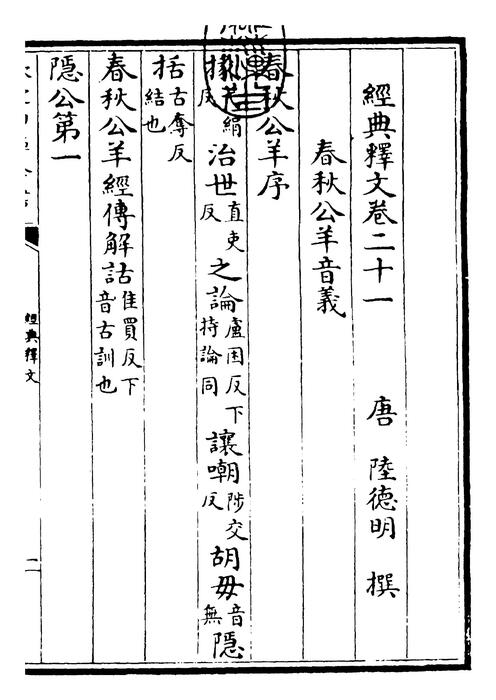 經典釋文卷二十一
唐 陸德明 撰
春秋公羊音義
春秋公羊序
掾弋絹反 治世直吏反 之論盧困反下持論同 讓嘲陟交反 胡毋音無 隱
括古奪反結也
春秋公羊經傳解詁佳買反下音古訓也
隱公第一
經典釋文
二